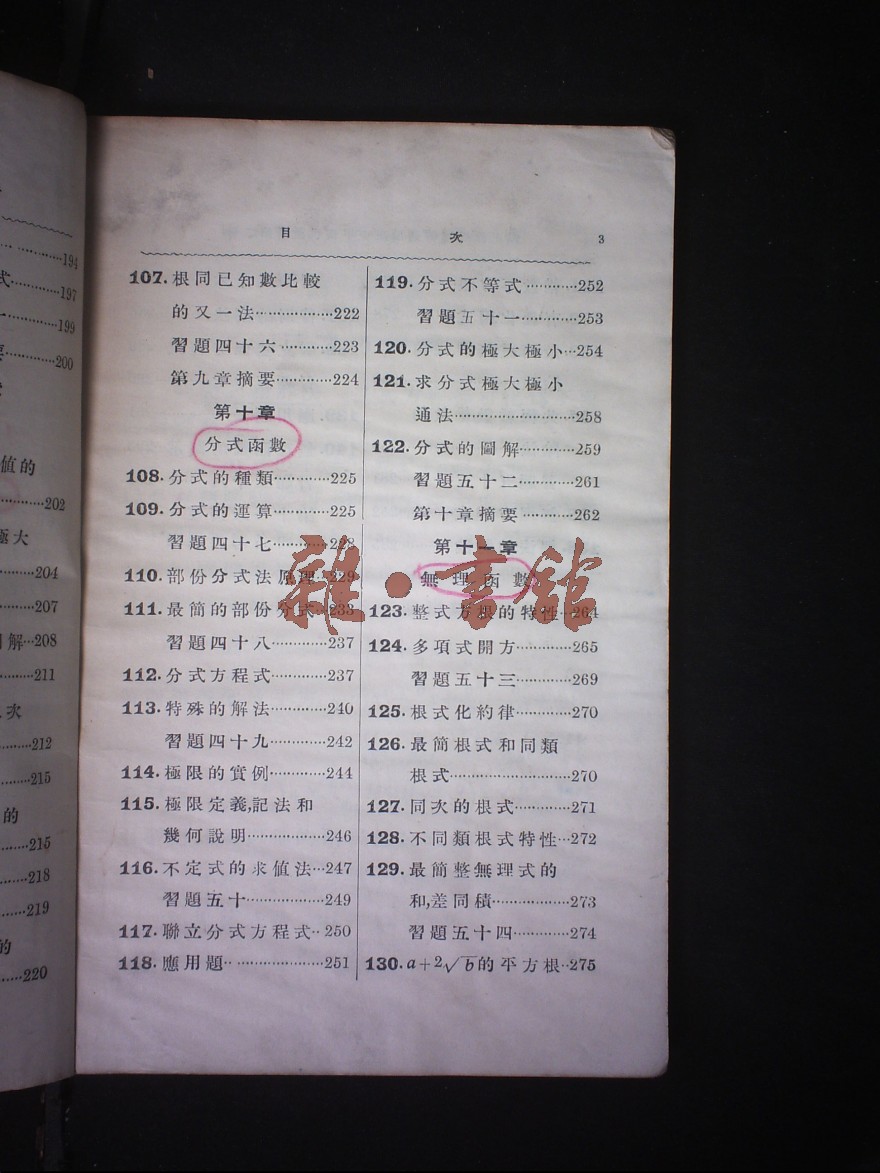 194
式…………197
一…………199
要…………200
值的
…………202
極大
…………204
…………207
圖解…208
…………211
次
…………212
…………215
的
…………215
…………218
…………219
的
…………220
目 次 3
107.根同已知數比較
的又一法………………222
習題四十六…………223
第九章摘要…………224
第十章
分式函數
108.分式的種類…………225
109.分式的運算…………225
習題四十七…………228
110.部份分式法原理…229
111.最簡的部份分式…233
習題四十八…………237
112.分式方程式…………237
113.特殊的解法…………240
習題四十九…………242
114.極限的實例…………244
115.極限定義,記法和
幾何說明………………246
116.不定式的求値法…247
習題五十………………249
117.聯立分式方程式…250
118.應用題…………………251
119.分式不等式…………252
習題五十一…………253
120.分式的極大極小…254
121.求分式極大極小
通法………………………258
122.分式的圖解…………259
習題五十二…………261
第十章摘要…………262
第十一章
無理函數
123.整式方根的特性…264
124.多項式開方…………265
習題五十三…………269
125.根式化約律…………270
126.最簡根式和同類
根式………………………270
127.同次的根式…………271
128.不同類根式特性…272
129.最簡整無理式的
和,差同積………………273
習題五十四…………274
130.a+2√b的平方根…275
雜·書館